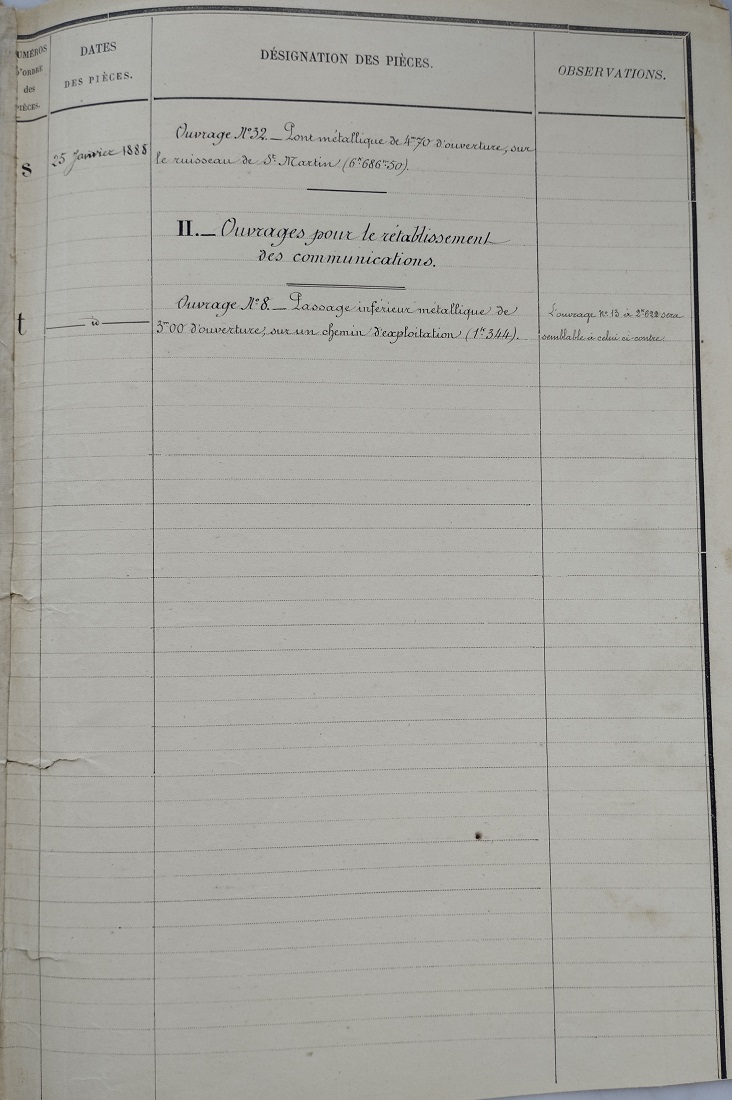 NUMÉROS
D'ORDRE
des
PIÈCES.
DATES
DES PIÈCES.
DÉSIGNATION DES PIÈCES.
OBSERVATIONS.
s
25 Janvier 1888
Ouvrage Nº 32. _ Pont métallique de 4ᵐ70 d'ouverture, sur
le ruisseau de Sᵗ Martin (6ᵏ686ᵐ50).
II. _ Ouvrages pour le rétablissement
des communications.
t
id
Ouvrage Nº 8. _ Passage inférieur métallique de
3ᵐ00 d'ouverture, sur un chemin d'exploitation (1ᵏ344).
L'ouvrage Nº 13 à 2ᵏ622 sera
semblable à celui ci-contre